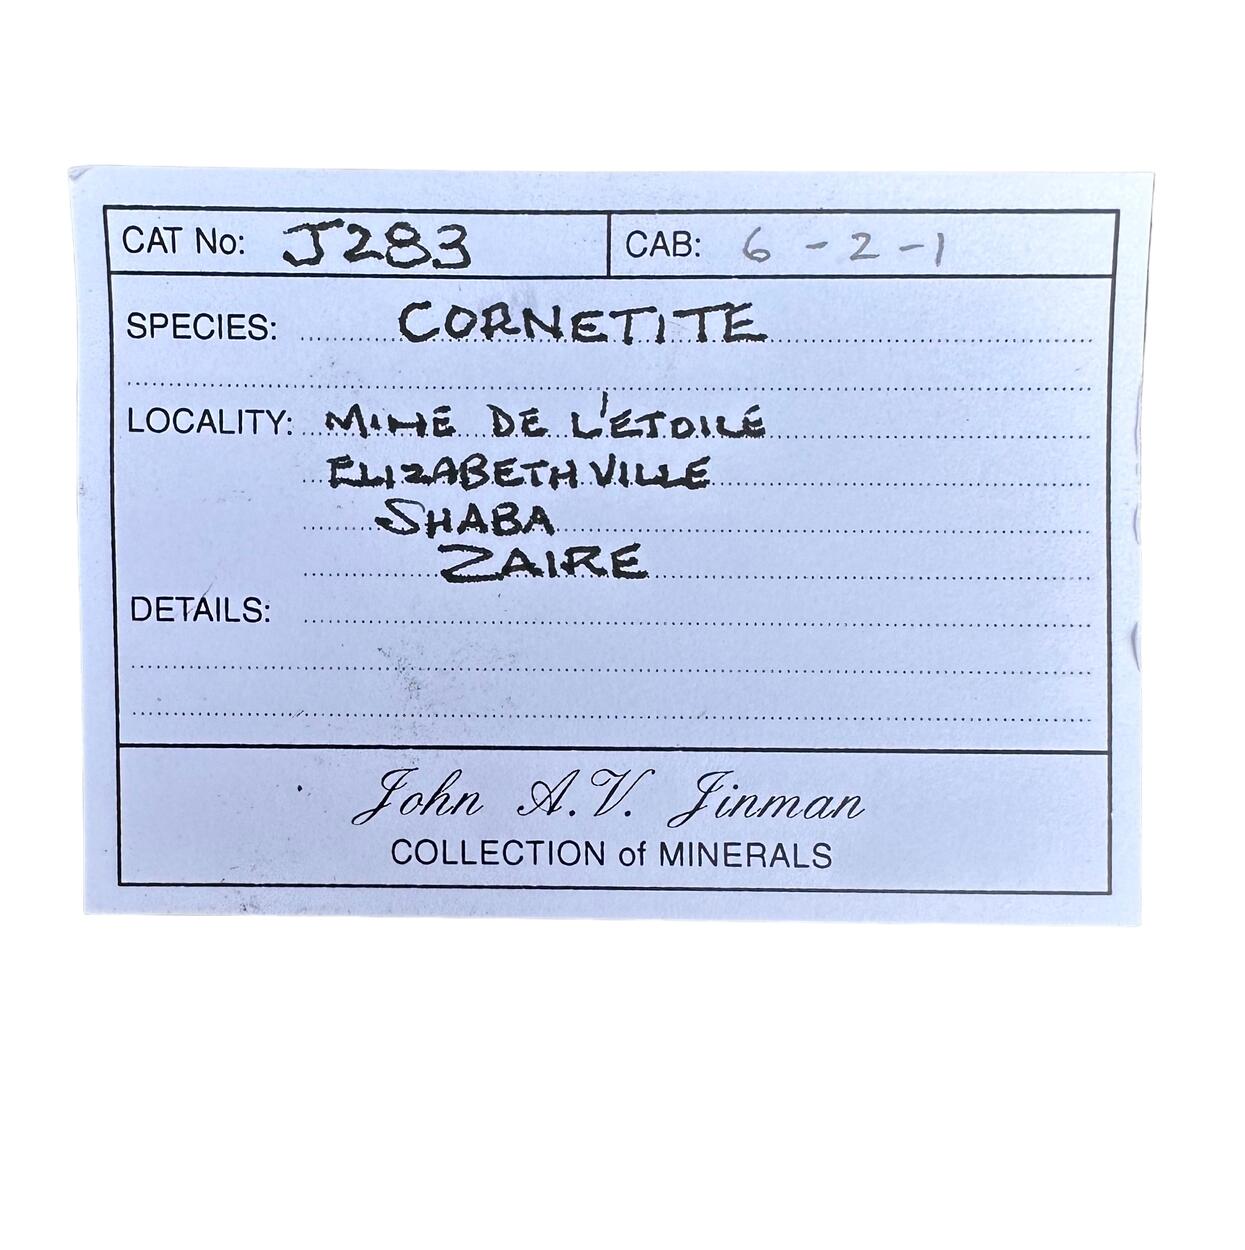 CAT No: J283 CAB: 6 - 2 - 1
SPECIES: CORNETITE
LOCALITY: MINE DE L'ETOILE
ELIZABETHVILLE
SHABA
ZAIRE
DETAILS:
John A.V. Jinman
COLLECTION of MINERALS